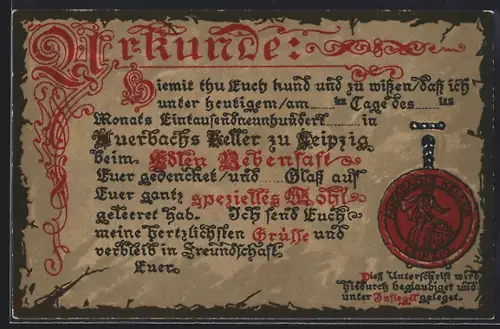 Urkunde:
Hiemit thu Euch kund und zu wißen/daß ich
unter heutigem/am......ten Tage des......ten
Monats Eintausendneunhundert......in
Auerbachs Keller zu Leipzig
beim Edlen Rebensaft
Euer gedencket/und......Glaß auf
Euer gantz spezielles Wohl
geleeret hab. Ich send Euch
meine hertzlichsten Grüsse und
verbleib in Freundschaft
Euer
AUERBACHS KELLER
LEIPZIG
Dieß Unterschrift wird
hiedurch beglaubiget und
unter Insiegel geleget.